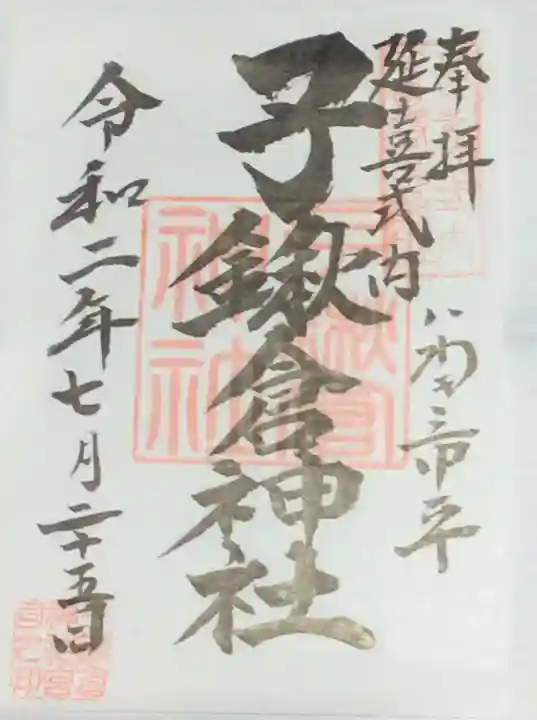 奉拝
いわき市平
延喜式内
子鍬倉神社
令和二年七月二十五日